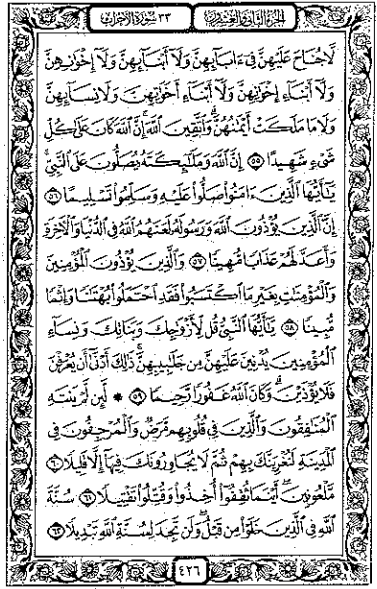 الجزء الثاني والعشرون ٣٣ سورة الأحزاب
لَّا جُنَاحَ عَلَيْهِنَّ فِىٓ ءَابَآئِهِنَّ وَلَآ أَبْنَآئِهِنَّ وَلَآ إِخْوَٰنِهِنَّ
وَلَآ أَبْنَآءِ إِخْوَٰنِهِنَّ وَلَآ أَبْنَآءِ أَخَوَٰتِهِنَّ وَلَا نِسَآئِهِنَّ
وَلَا مَا مَلَكَتْ أَيْمَٰنُهُنَّ وَٱتَّقِينَ ٱللَّهَ إِنَّ ٱللَّهَ كَانَ عَلَىٰ كُلِّ
شَىْءٍ شَهِيدًا ٥٥ إِنَّ ٱللَّهَ وَمَلَٰٓئِكَتَهُۥ يُصَلُّونَ عَلَى ٱلنَّبِىِّ
يَٰٓأَيُّهَا ٱلَّذِينَ ءَامَنُوا۟ صَلُّوا۟ عَلَيْهِ وَسَلِّمُوا۟ تَسْلِيمًا ٥٦
إِنَّ ٱلَّذِينَ يُؤْذُونَ ٱللَّهَ وَرَسُولَهُۥ لَعَنَهُمُ ٱللَّهُ فِى ٱلدُّنْيَا وَٱلْءَاخِرَةِ
وَأَعَدَّ لَهُمْ عَذَابًا مُّهِينًا ٥٧ وَٱلَّذِينَ يُؤْذُونَ ٱلْمُؤْمِنِينَ
وَٱلْمُؤْمِنَٰتِ بِغَيْرِ مَا ٱكْتَسَبُوا۟ فَقَدِ ٱحْتَمَلُوا۟ بُهْتَٰنًا وَإِثْمًا
مُّبِينًا ٥٨ يَٰٓأَيُّهَا ٱلنَّبِىُّ قُل لِّأَزْوَٰجِكَ وَبَنَاتِكَ وَنِسَآءِ
ٱلْمُؤْمِنِينَ يُدْنِينَ عَلَيْهِنَّ مِن جَلَٰبِيبِهِنَّ ذَٰلِكَ أَدْنَىٰٓ أَن يُعْرَفْنَ
فَلَا يُؤْذَيْنَ وَكَانَ ٱللَّهُ غَفُورًا رَّحِيمًا ٥٩ * لَّئِن لَّمْ يَنتَهِ
ٱلْمُنَٰفِقُونَ وَٱلَّذِينَ فِى قُلُوبِهِم مَّرَضٌ وَٱلْمُرْجِفُونَ فِى
ٱلْمَدِينَةِ لَنُغْرِيَنَّكَ بِهِمْ ثُمَّ لَا يُجَاوِرُونَكَ فِيهَآ إِلَّا قَلِيلًا ٦٠
مَّلْعُونِينَ أَيْنَمَا ثُقِفُوٓا۟ أُخِذُوا۟ وَقُتِّلُوا۟ تَقْتِيلًا ٦١ سُنَّةَ
ٱللَّهِ فِى ٱلَّذِينَ خَلَوْا۟ مِن قَبْلُ وَلَن تَجِدَ لِسُنَّةِ ٱللَّهِ تَبْدِيلًا ٦٢
٤٢٦